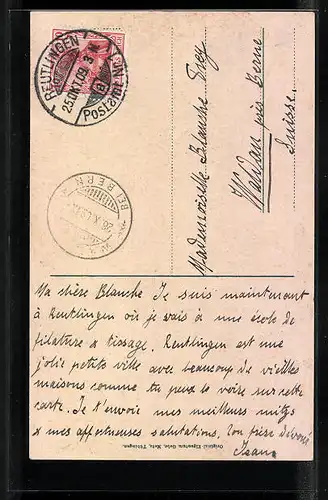 REUTLINGEN
25 OKT. 09
Postamt
BERN
Mademoiselle Blanche Frey
Waldau près Berne
Suisse.
Ma chère Blanche Je suis maintenant
à Reutlingen où je vais à une école de
filature & tissage. Reutlingen est une
jolie petite ville avec beaucoup de vieilles
maisons comme tu peux le voire sur cette
carte. Je t'envoie mes meilleurs
& mes affectueuses salutations. Ton frère dévoué
Original-Eigentum Gebr. Metz, Tübingen.